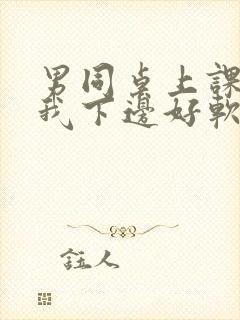 男同桌上課
我下邊好軟
註人